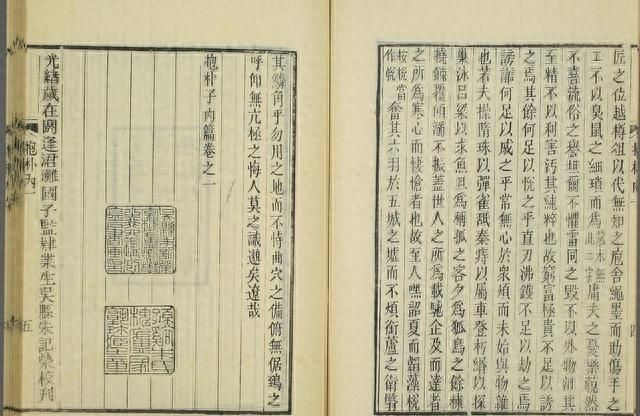 匠之位越樽俎以代無知之庖舍繩墨而助傷手之
工不以臭鼠之細瑣而爲本無此二字庸夫之憂樂藐然
不喜流俗之譽坦爾不懼雷同之毀不以外物汩其
至精不以利害汚其純粹也故窮富極貴不足以誘
之焉其餘何足以悅之乎直刃沸鑊不足以劫之焉
謗讟何足以戚之乎常無心於衆煩而未始與物雜
也若夫操隋珠以彈雀舐秦痔以屬車登朽緡以探
巢泳呂梁以求魚旦爲稱孤之客夕爲狐鳥之餘棟
撓餗覆傾溺不振蓋世人之所爲載馳企及而達者
之所爲寒心而悽愴者也故至人嘿韶夏而韜藻梲
按梲當作帨奮其六羽於五城之墟而不煩銜蘆之衞翳
其鱗角乎勿用之地而不恃曲穴之備俯無倨鵄之
呼仰無亢極之悔人莫之識邈矣遼哉
抱朴子內篇卷之一
抱朴內一
五
光緒歲在閼逢涒灘國子監肄業生吳縣朱記榮校刊